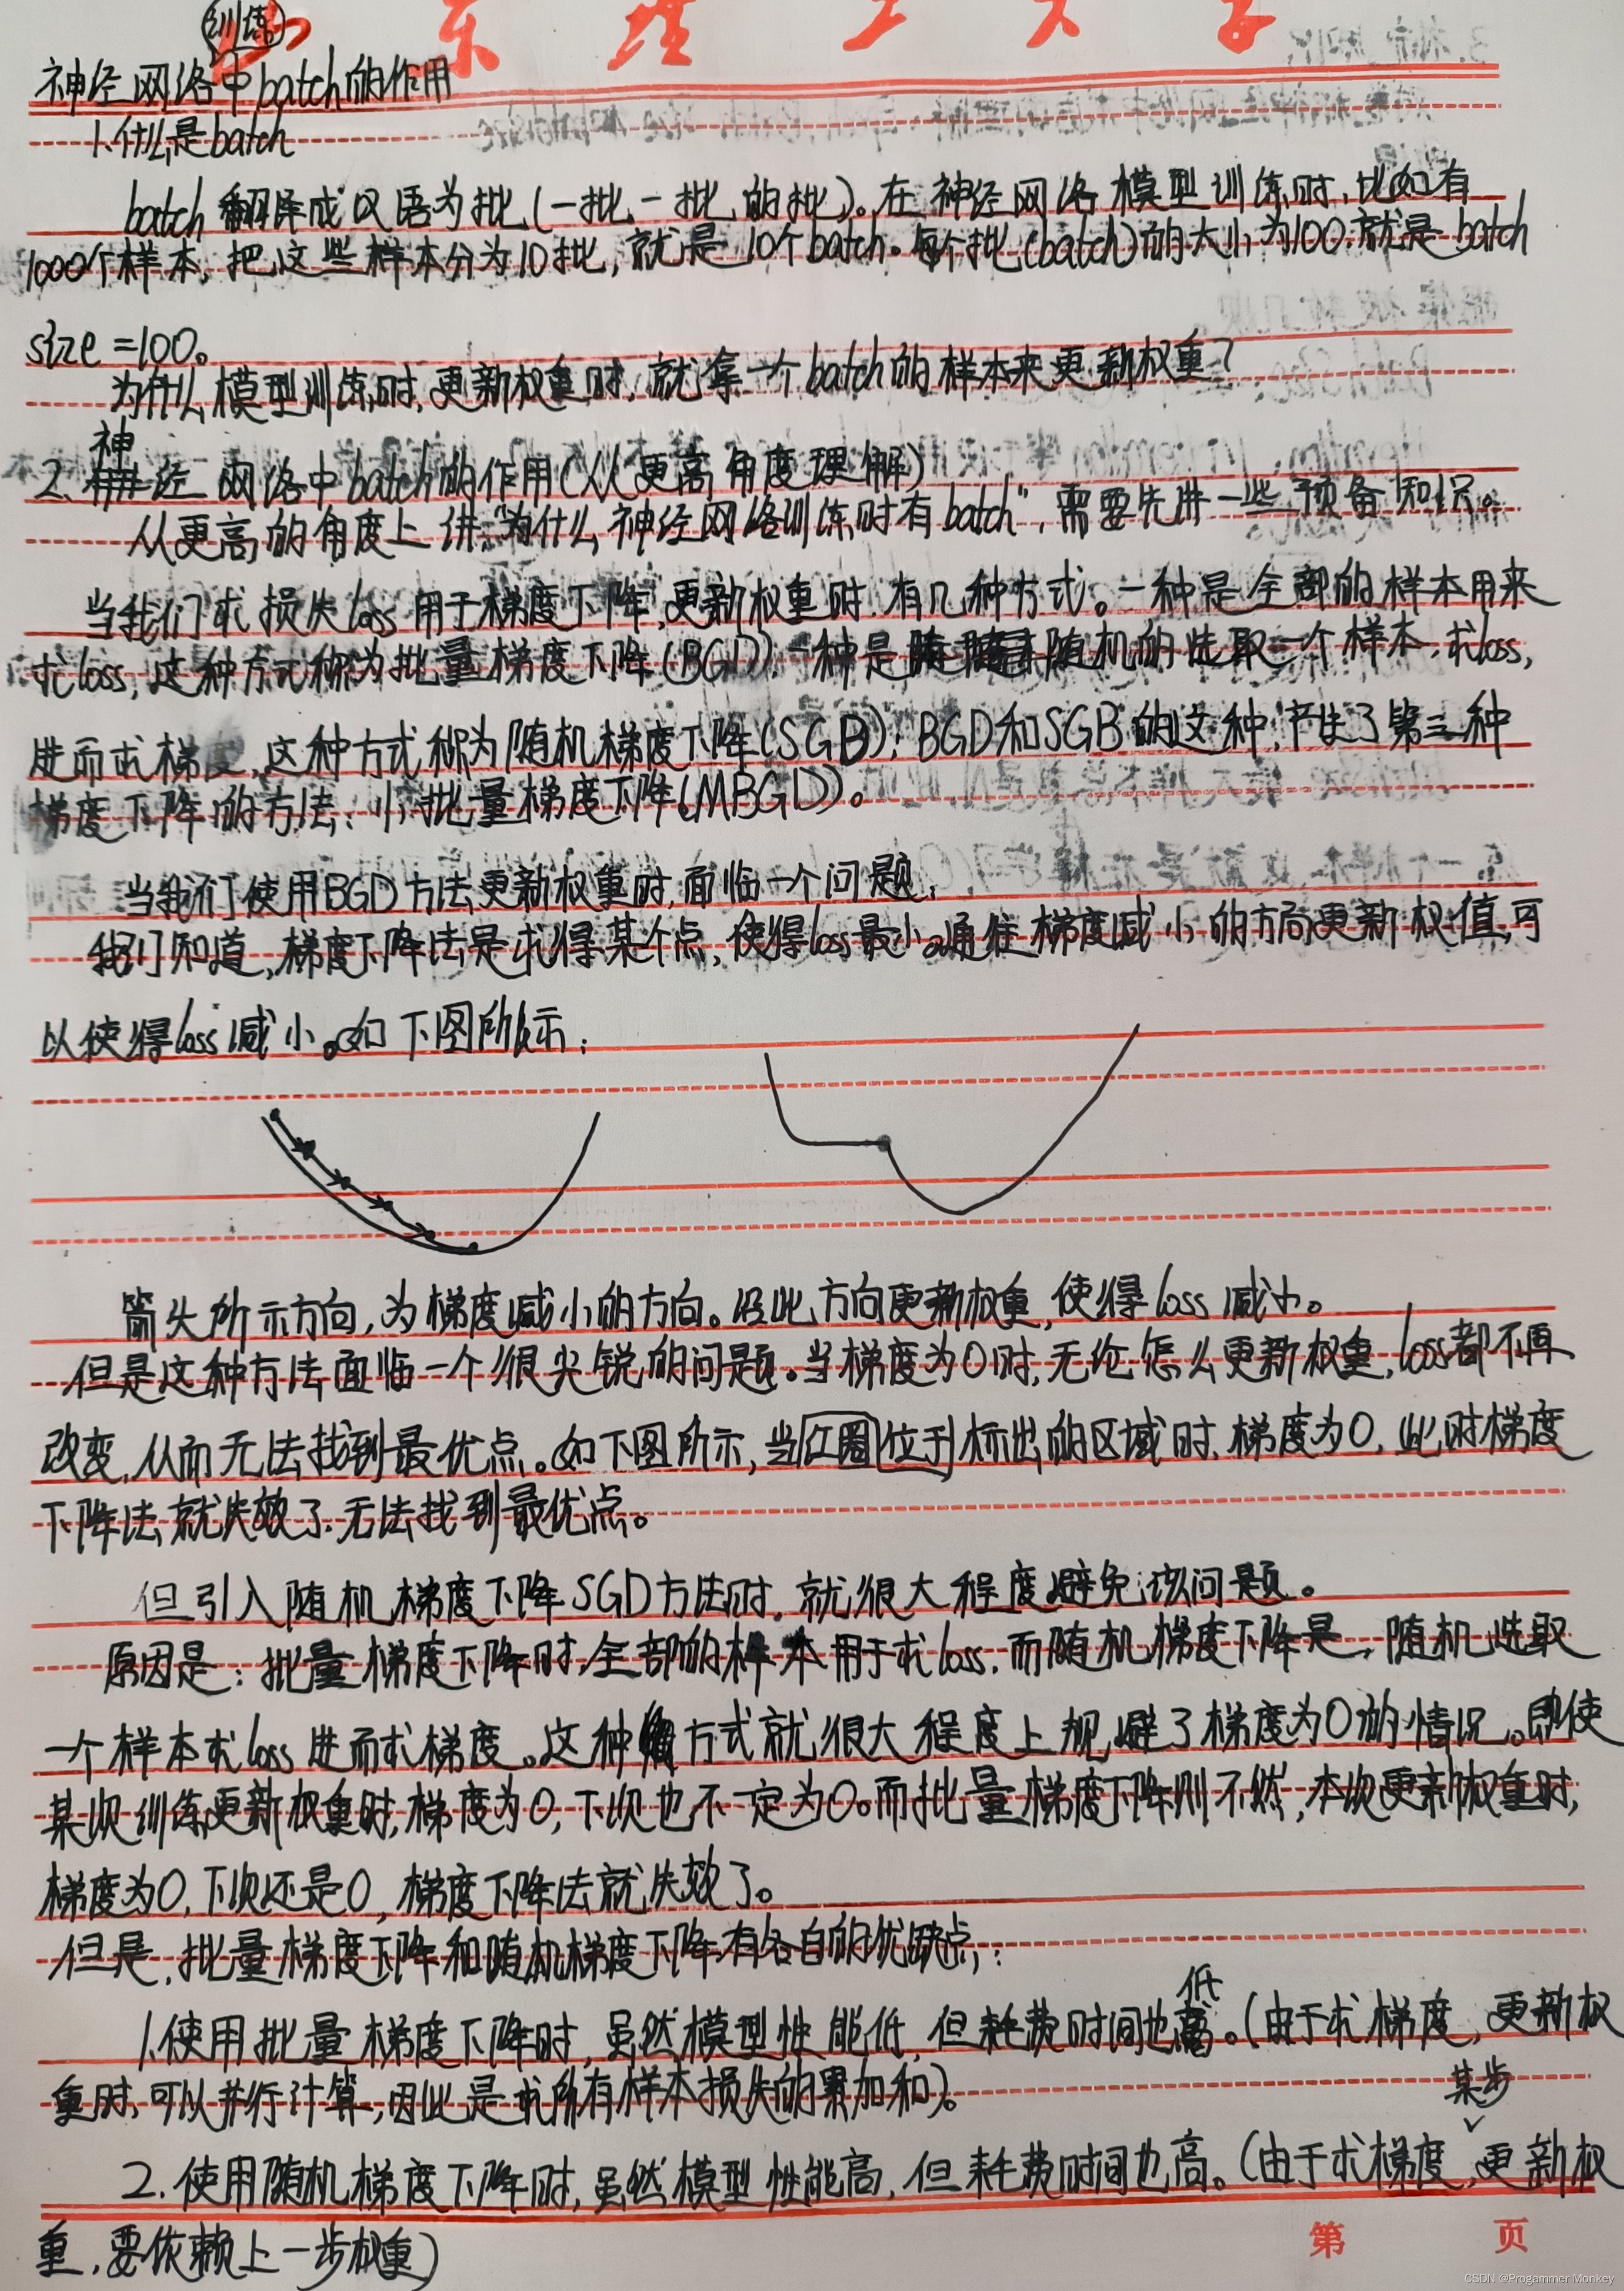 东 理 工 大 学
训练
神经网络中batch的作用
1.什么是batch
batch 翻译成汉语为批(一批一批的批)。在神经网络模型训练时,比如有
1000个样本,把这些样本分为10批,就是10个batch。每个批(batch)的大小为100,就是batch
size=100。
为什么模型训练时,更新权重时,就拿一个batch的样本来更新权重?
神
2. 经网络中batch的作用(从更高角度理解)
从更高的角度上讲“为什么神经网络训练时有batch”,需要先讲一些预备知识。
当我们求损失loss用于梯度下降,更新权重时,有几种方式。一种是全部的样本用来
求loss,这种方式称为批量梯度下降(BGD);一种是随机的选取一个样本,求loss,
进而求梯度,这种方式称为随机梯度下降(SGB);BGD和SGB的这种,产生了第三种
梯度下降的方法:小批量梯度下降(MBGD)。
当我们使用BGD方法更新权重时,面临一个问题,
我们知道,梯度下降法是求得某个点,使得loss最小。通往梯度减小的方向更新权值,可
以使得loss减小。如下图所示:
箭头所示方向,为梯度减小的方向。沿此方向更新权重,使得loss减小。
但是这种方法面临一个很尖锐的问题。当梯度为0时,无论怎么更新权重,loss都不再
改变,从而无法找到最优点。如下图所示,当红圈位于标出的区域时,梯度为0,此时梯度
下降法就失效了,无法找到最优点。
但引入随机梯度下降SGD方法时,就很大程度避免该问题。
原因是:批量梯度下降时,全部的样本用于求loss,而随机梯度下降是,随机选取
一个样本求loss进而求梯度。这种方式就很大程度上规避了梯度为0的情况。即使
某次训练更新权重时,梯度为0,下次也不一定为0。而批量梯度下降则不然,本次更新权重时,
梯度为0,下次还是0,梯度下降法就失效了。
但是,批量梯度下降和随机梯度下降有各自的优缺点,:
低
1.使用批量梯度下降时,虽然模型性能低,但耗费时间也 。(由于求梯度,更新权
重时,可以并行计算,因此是求所有样本损失的累加和)。
某步
2.使用随机梯度下降时,虽然模型性能高,但耗费时间也高。(由于求梯度,更新权
重,要依赖上一步权重)
第 页
CSDN @Progammer Monkey